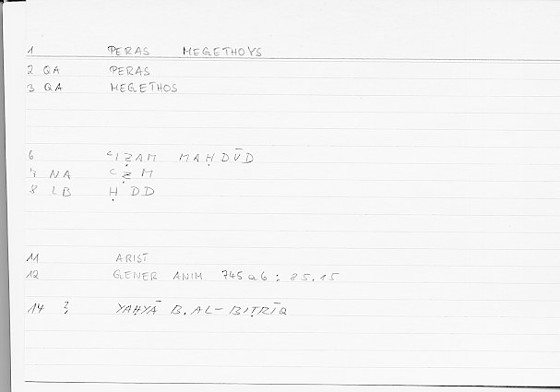 1 PERAS MEGETHOYS
2 QA PERAS
3 QA MEGETHOS
6 ʿIẒAM MAḤDŪD
7 NA ʿẒM
8 LB ḤDD
11 ARIST
12 GENER ANIM 745a6 : 85.15
14 ? YAḤYĀ B. AL-BIṬRĪQ